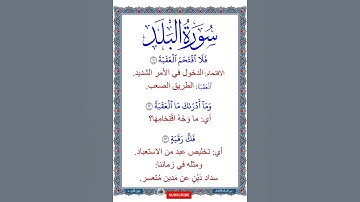 سُورَةُ الْبَلَدِ
فَلَا ٱقْتَحَمَ ٱلْعَقَبَةَ ١١
الاقتحام: الدخول في الأمر الشديد.
ٱلْعَقَبَةَ: الطريق الصعب.
وَمَآ أَدْرَىٰكَ مَا ٱلْعَقَبَةُ ١٢
أي: ما وَجْهُ اقْتِحَامِهَا؟
فَكُّ رَقَبَةٍ ١٣
أي: تخليص عبد من الاستعباد.
ومثله في زماننا:
سداد دَيْنٍ عن مَدين مُتعسر.